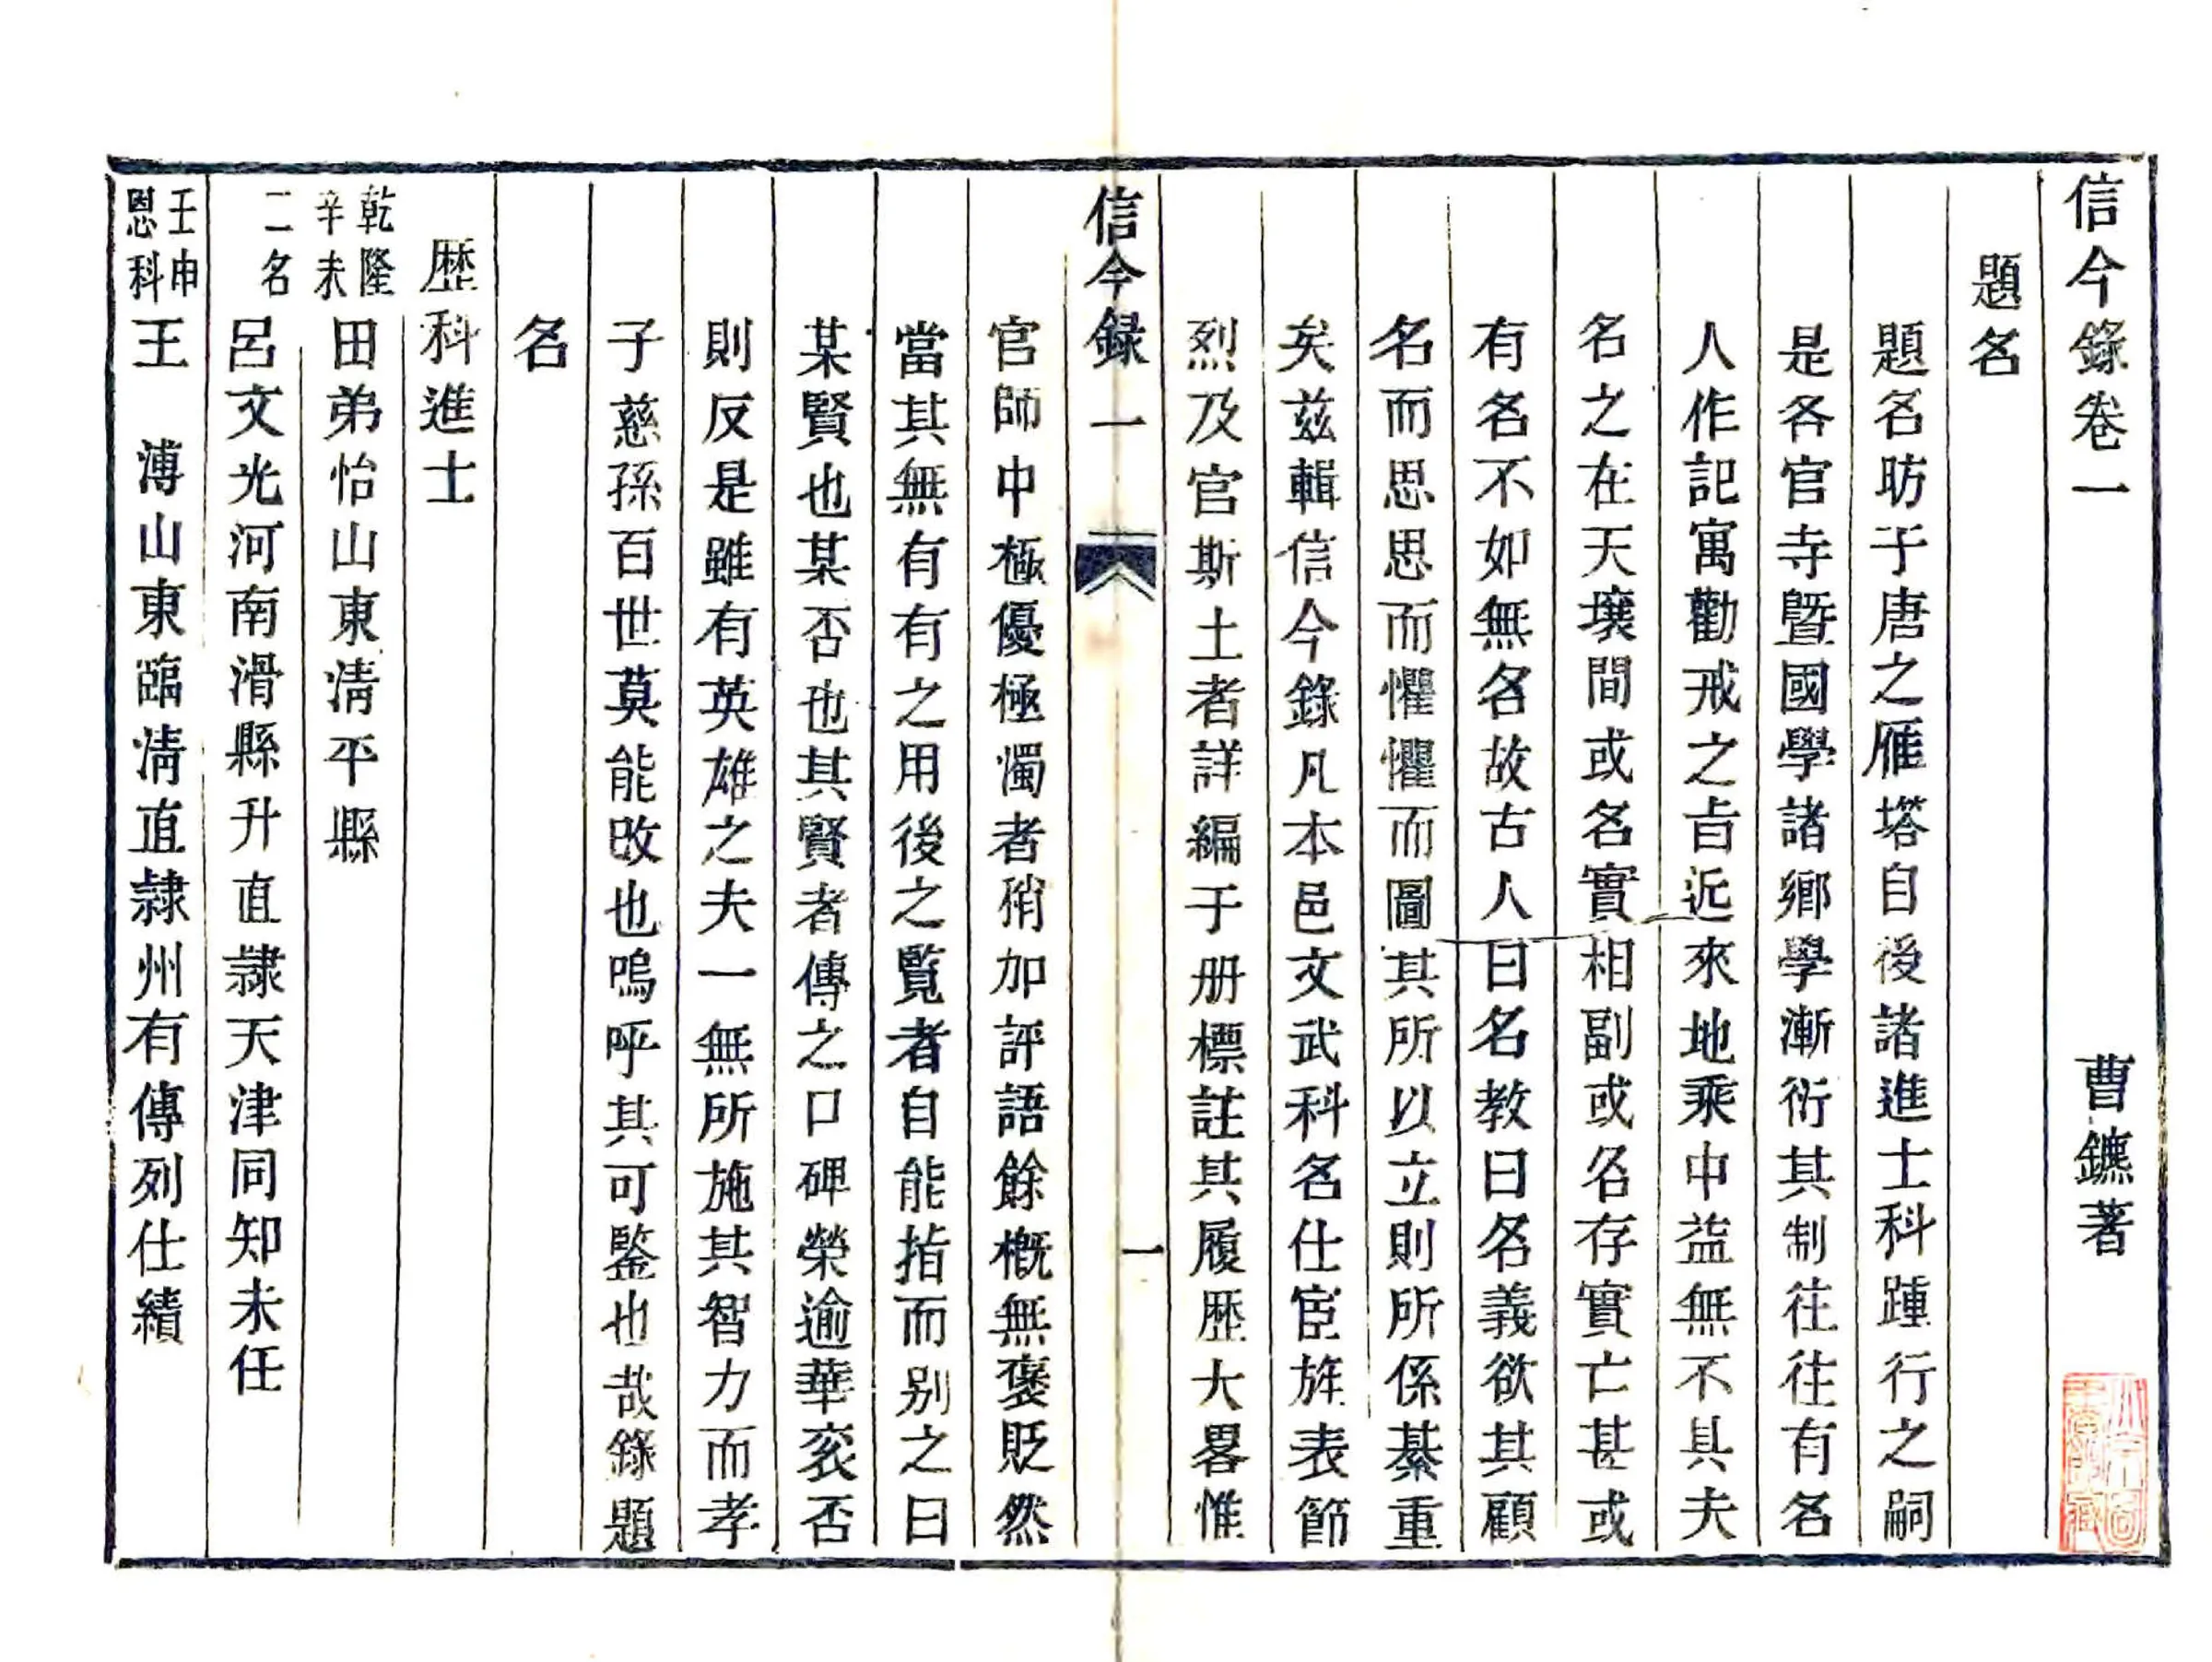 信今錄卷一 曹鑣著
題名
題名昉于唐之雁塔自後諸進士科踵行之嗣
是各官寺曁國學諸鄉學漸衍其制往往有名
人作記寓勸戒之㫖近來地乘中益無不具夫
名之在天壤間或名實相副或名存實亡甚或
有名不如無名故古人曰名教曰名義欲其顧
名而思思而懼懼而圖其所以立則所係綦重
矣兹輯信今錄凡本邑文武科名仕宦旌表節
烈及官斯土者詳編于册標註其履歴大畧惟
信今録一 一
官師中極優極濁者稍加評語餘槪無褒貶然
當其無有有之用後之覧者自能指而别之曰
某賢也某否也其賢者傳之口碑榮逾華衮否
則反是雖有英雄之夫一無所施其智力而孝
子慈孫百世莫能改也嗚呼其可鑒也哉錄題
名
歴科進士
乾隆辛未 田弟怡山東淸平縣
二名 呂文光河南滑縣升直隷天津同知未任
壬申恩科 王 溥山東臨淸直隷州有傳列仕績